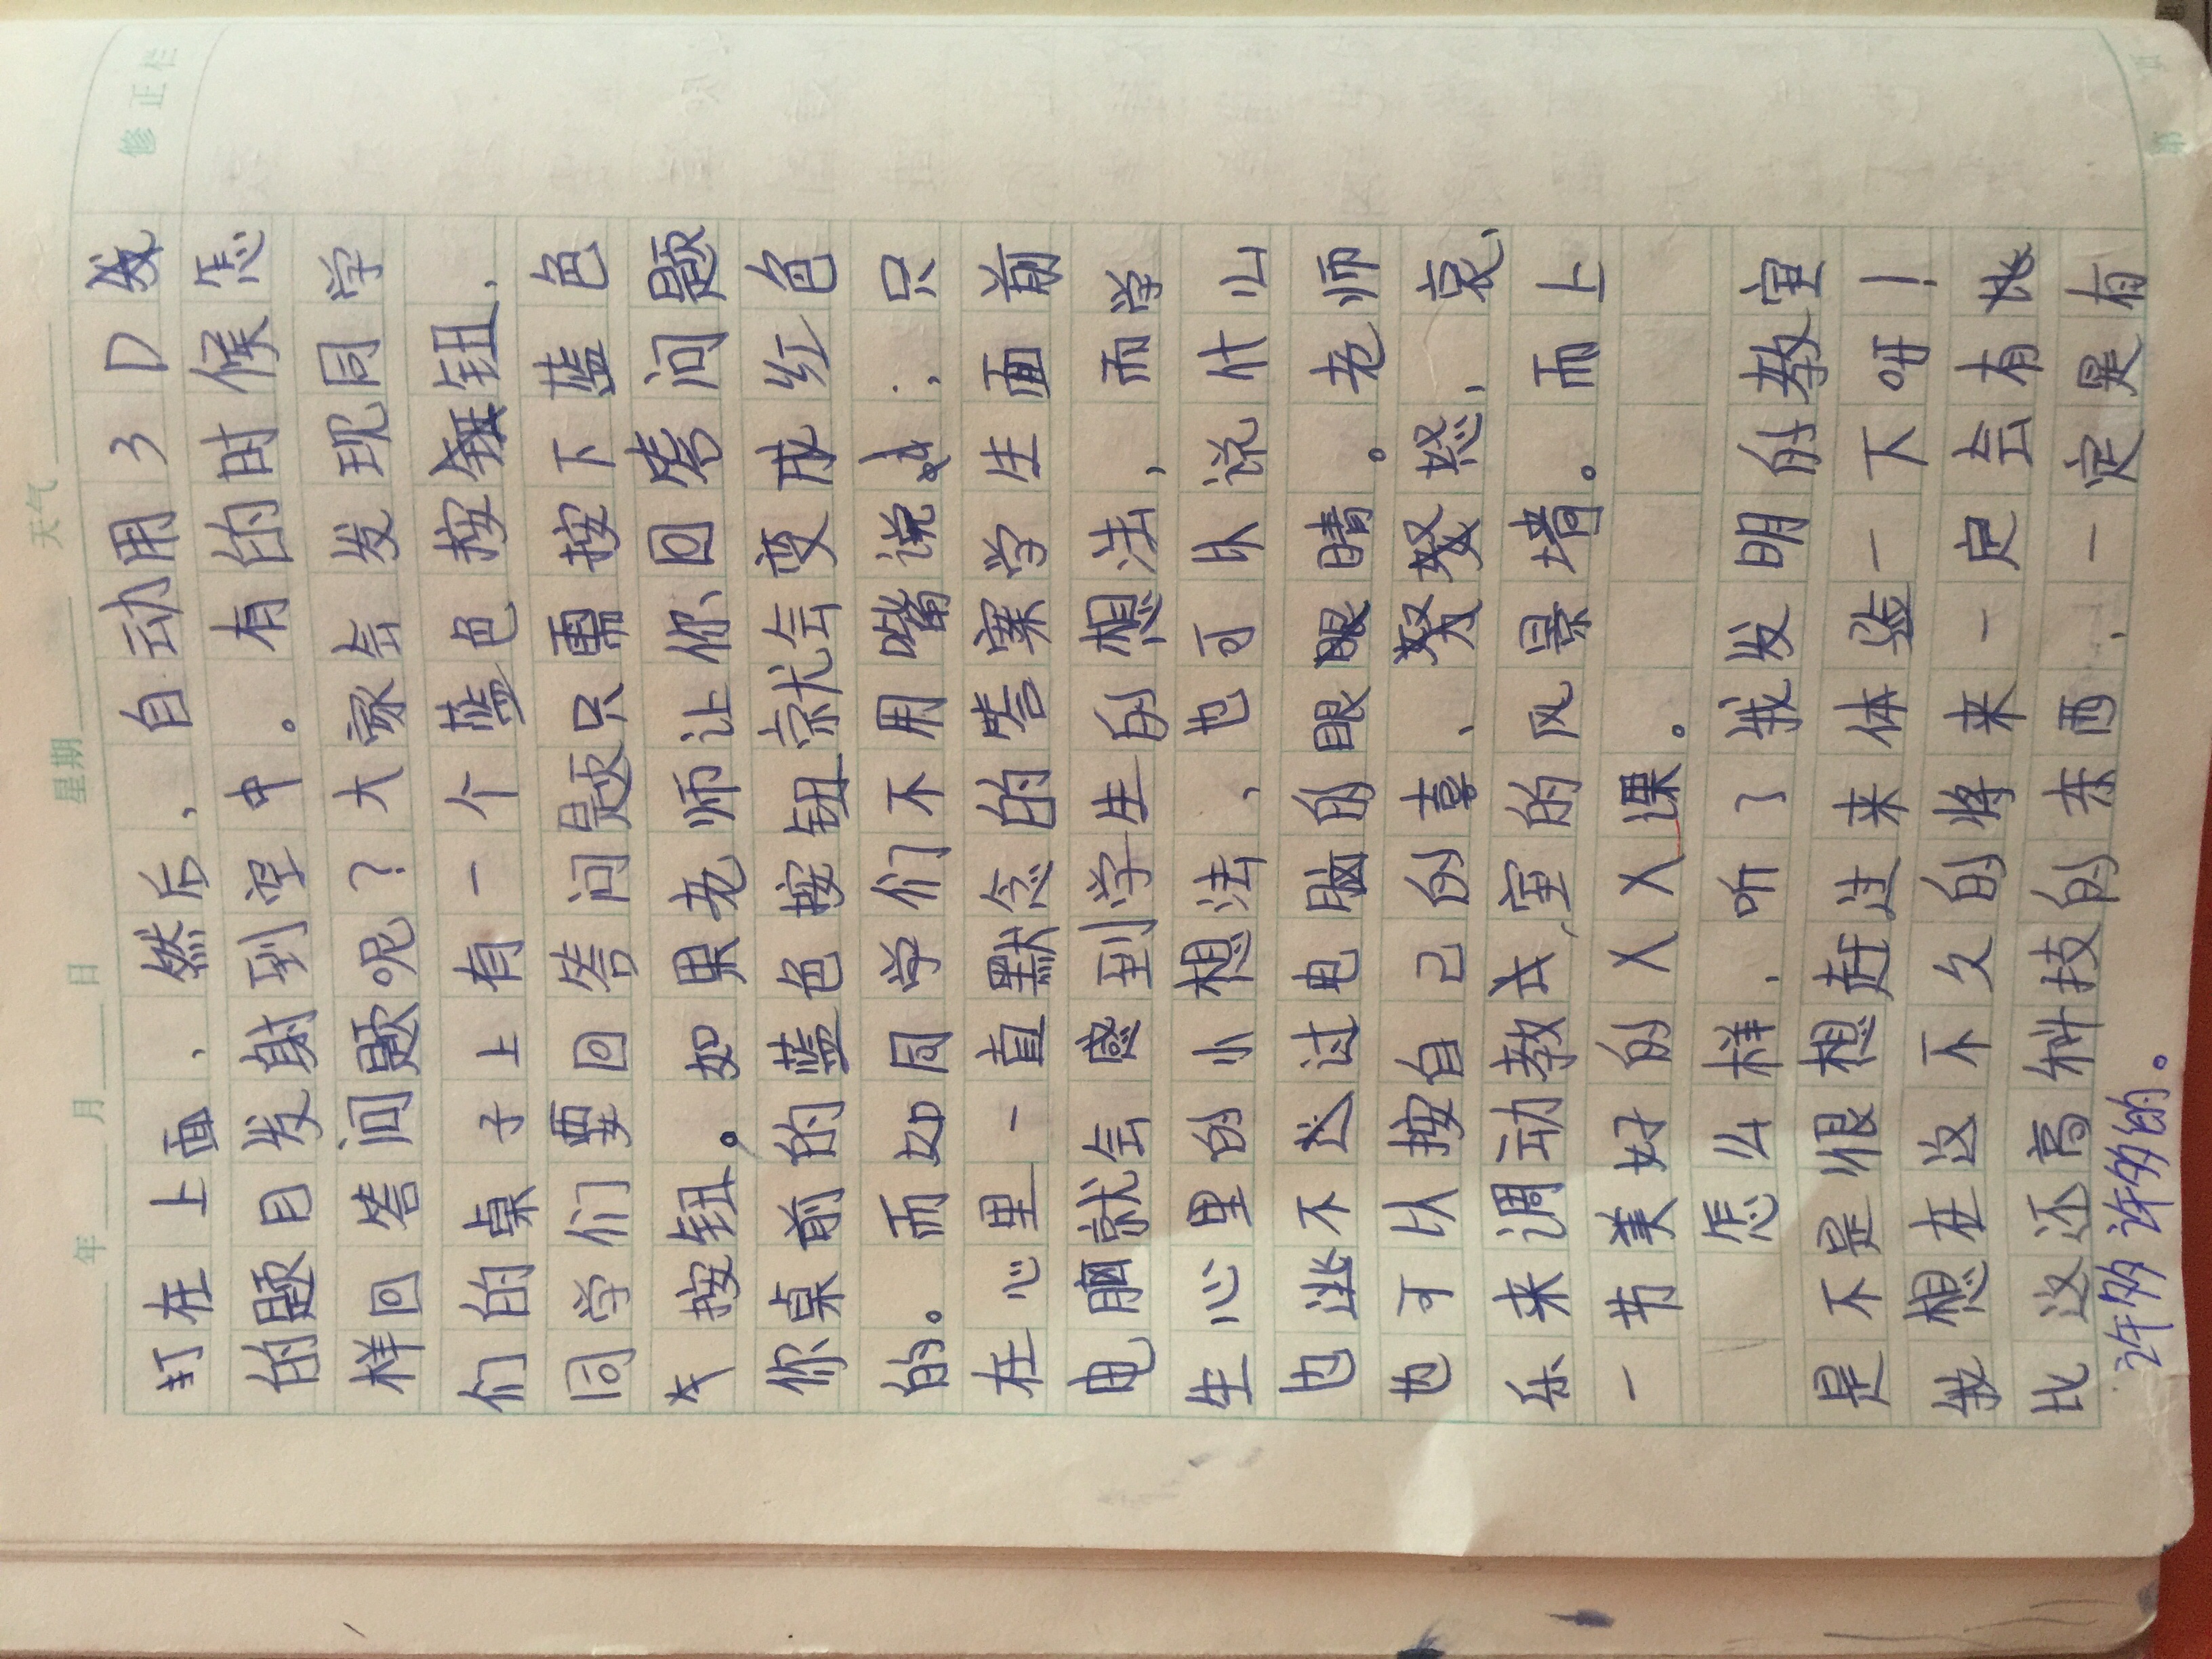 年 月 日 星期 天气
修正栏
第 页
打在上面、然后,自动用3D发
的题目发射到空中。有的时候怎
样回答问题呢?大家会发现同学
们的桌子上有一个蓝色按钮、
同学们要回答问题只需按下蓝色
按钮。如果老师让你回答问题
你桌前的蓝色按钮就会变成红色
的。而如同学们不用嘴说;只
在心里一直默念的答案学生面前
电脑就会感到学生的想法,而学
生心里的小想法,也可以说什么
也逃不过电脑的眼睛。老师
也可以按自己的喜、怒、哀、
乐来调动教室的风景墙。而上
一节美好的XX课。
怎么样、听了我发明的教室
是不是很想赶过来体验一下呀!
我想在这不久的将来一定会有
比这还高科技的东西、一定是有
许多许多的。